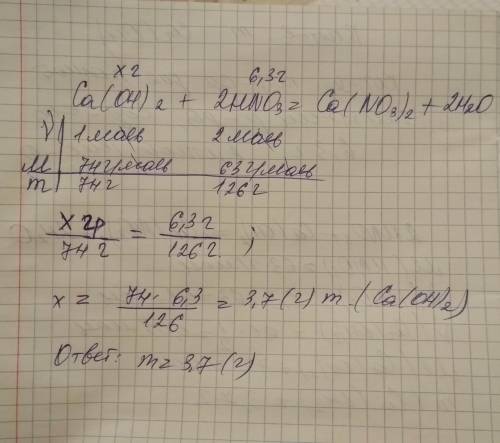 x г 6,3 г
Ca(OH)2 + 2HNO3 = Ca(NO3)2 + 2H2O
ν 1 моль 2 моль
M 74 г/моль 63 г/моль
m 74 г 126 г
x гр / 74 г = 6,3 г / 126 г. ;
x = 74 · 6,3 / 126 = 3,7 (г) m (Ca(OH)2)
Ответ: m = 3,7 (г)